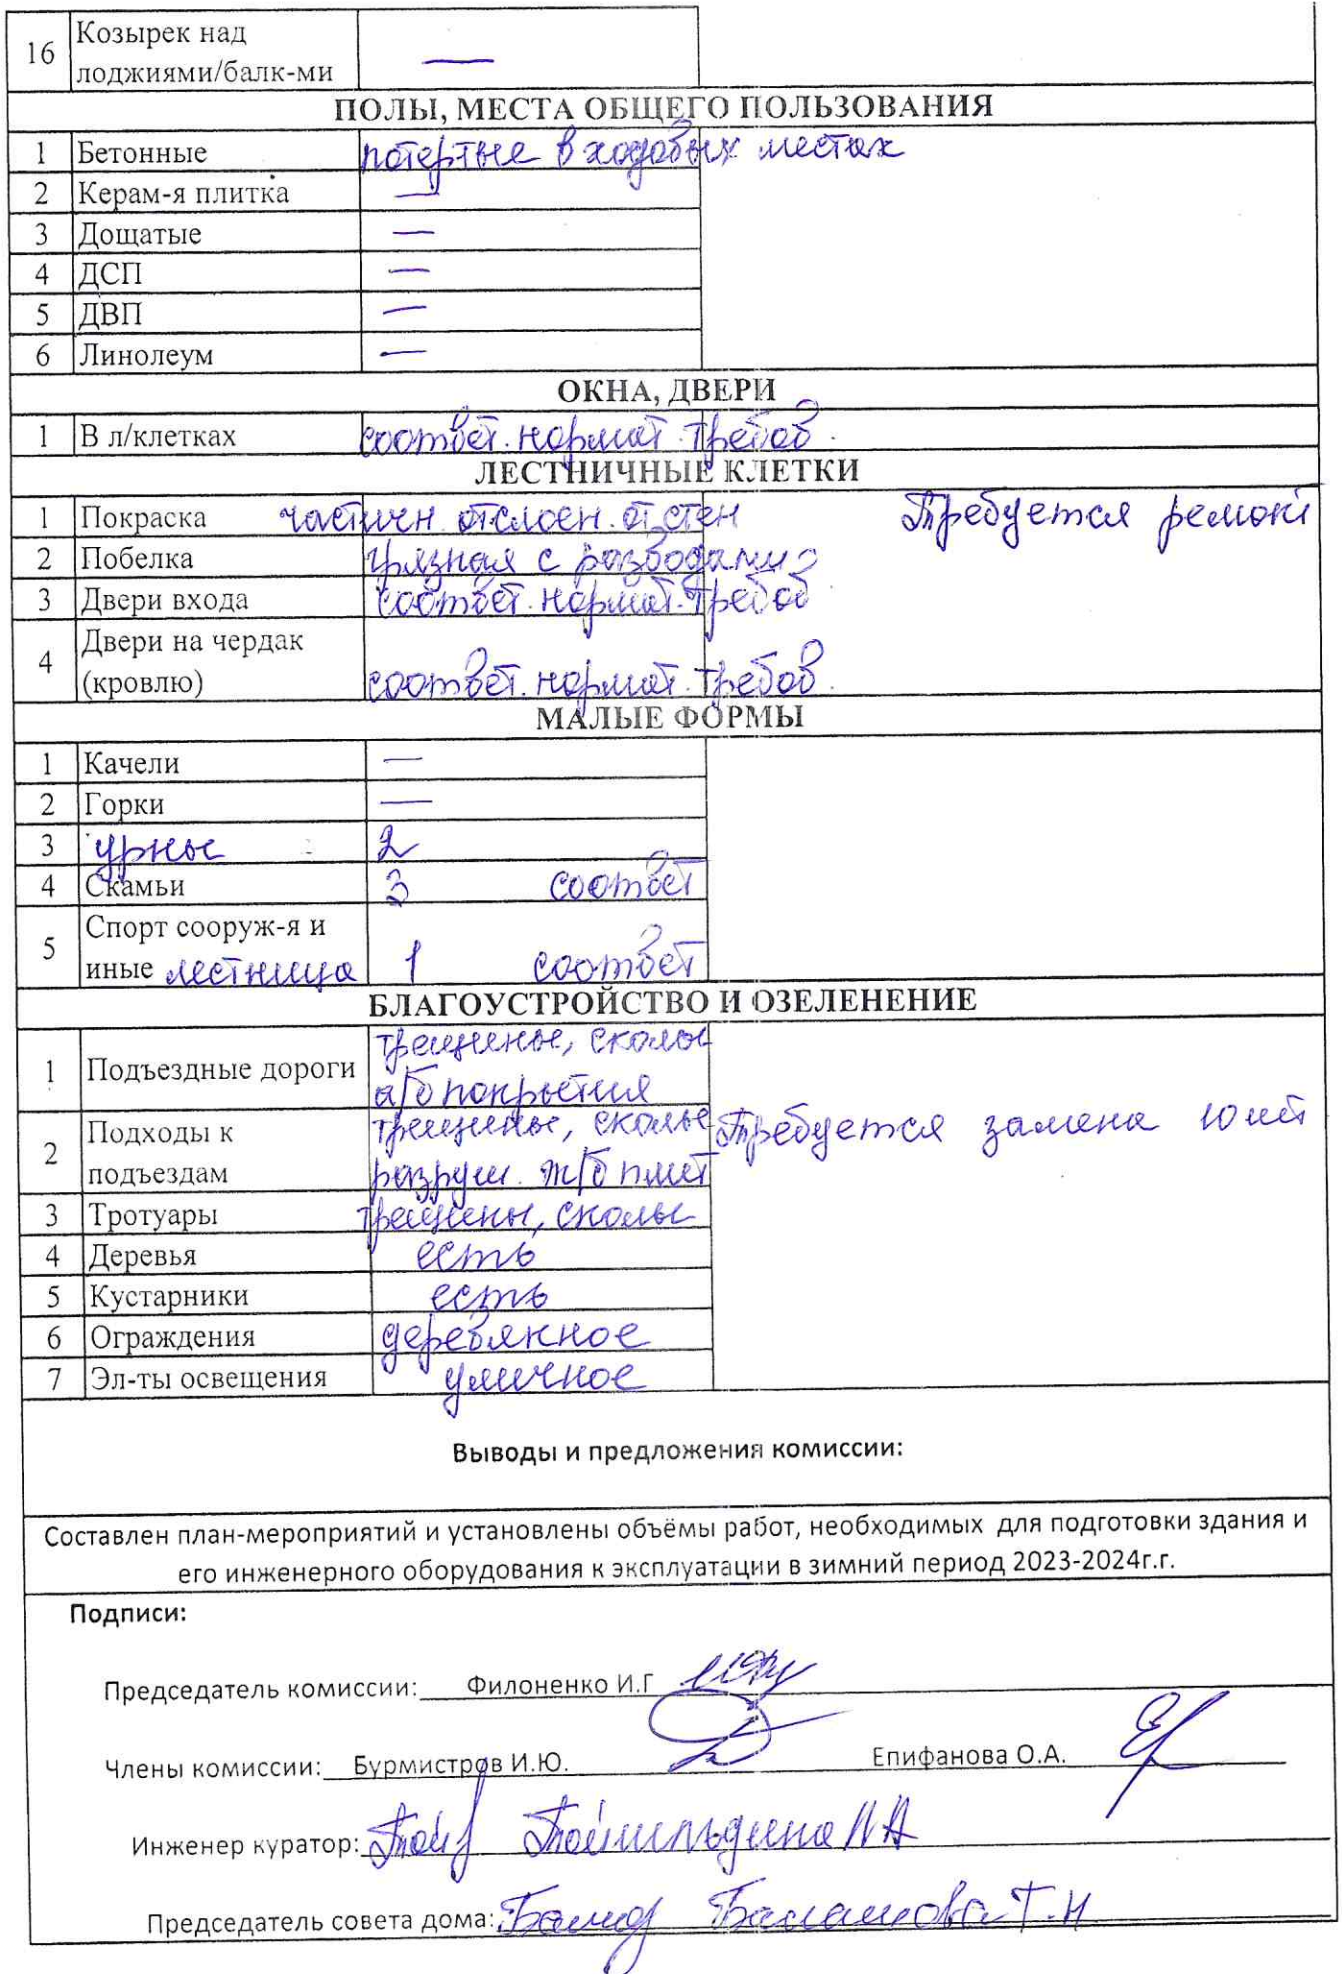 16 Козырек над
лоджиями/балк-ми —
ПОЛЫ, МЕСТА ОБЩЕГО ПОЛЬЗОВАНИЯ
1 Бетонные потертые в ходовых местах
2 Керам-я плитка —
3 Дощатые —
4 ДСП —
5 ДВП —
6 Линолеум —
ОКНА, ДВЕРИ
1 В л/клетках соответ. нормат. требов.
ЛЕСТНИЧНЫЕ КЛЕТКИ
1 Покраска частичн. отслоен. от стен Требуется ремонт
2 Побелка грязная с разводами
3 Двери входа соответ. нормат. требов
4 Двери на чердак
(кровлю) соответ. нормат. требов.
МАЛЫЕ ФОРМЫ
1 Качели —
2 Горки —
3 урны 2
4 Скамьи 3 соответ
5 Спорт сооруж-я и
иные лестница 1 соответ
БЛАГОУСТРОЙСТВО И ОЗЕЛЕНЕНИЕ
1 Подъездные дороги трещины, сколы
а/б покрытия
2 Подходы к подъездам трещины, сколы
разруш. ж/б плит Требуется замена 10 шт
3 Тротуары трещины, сколы
4 Деревья есть
5 Кустарники есть
6 Ограждения деревянное
7 Эл-ты освещения уличное
Выводы и предложения комиссии:
Составлен план-мероприятий и установлены объёмы работ, необходимых для подготовки здания и
его инженерного оборудования к эксплуатации в зимний период 2023-2024г.г.
Подписи:
Председатель комиссии: Филоненко И.Г
Члены комиссии: Бурмистров И.Ю. Епифанова О.А.
Инженер куратор:
Председатель совета дома: Балашова Т.Н